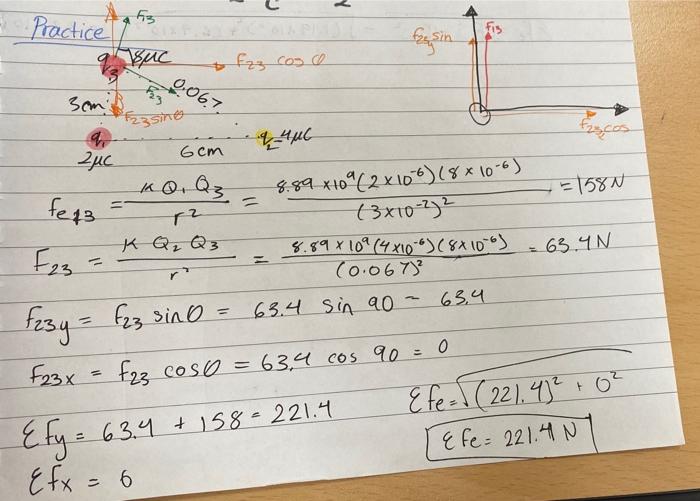 Practice
F13
8μC
q3
F23 cos θ
F23
0.067
F23 sinθ
3cm
q1
2μC
6cm
q2 -4μC
f23y sin
f13
f23x cos
fe13 = K Q1 Q3 / r² = 8.89 x10⁹ (2 x10⁻⁶) (8 x 10⁻⁶) / (3x10⁻²)² = 158 N
F23 = K Q2 Q3 / r² = 8.89 x 10⁹ (4 x10⁻⁶) (8x10⁻⁶) / (0.067)² = 63.4 N
f23y = f23 sin θ = 63.4 sin 90 = 63.4
F23x = f23 cos θ = 63.4 cos 90 = 0
Σfy = 63.4 + 158 = 221.4
Σfe = √(221.4)² + 0²
Σfx = 0
Σfe = 221.4 N